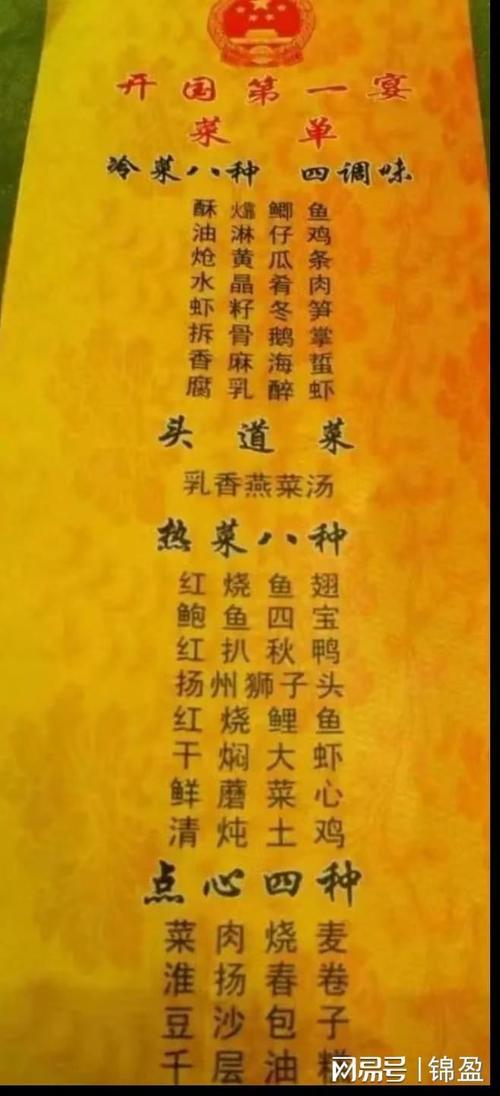 开国第一宴
菜单
冷菜八种 四调味
酥㸆鲫鱼
油淋仔鸡
炝黄瓜条
水晶肴肉
虾籽冬笋
拆骨鹅掌
香麻海蜇
腐乳醉虾
头道菜
乳香燕菜汤
热菜八种
红烧鱼翅
鲍鱼四宝
红扒秋鸭
扬州狮子头
红烧鲤鱼
干焖大虾
鲜蘑菜心
清炖土鸡
点心四种
菜肉烧麦
淮扬春卷
豆沙包子
千层油糕
网易号 | 锦盈